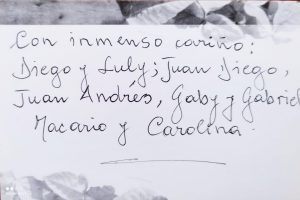 Con inmenso cariño:
Diego y Luly; Juan Diego,
Juan Andrés, Gaby y Gabriel
Macario y Carolina.